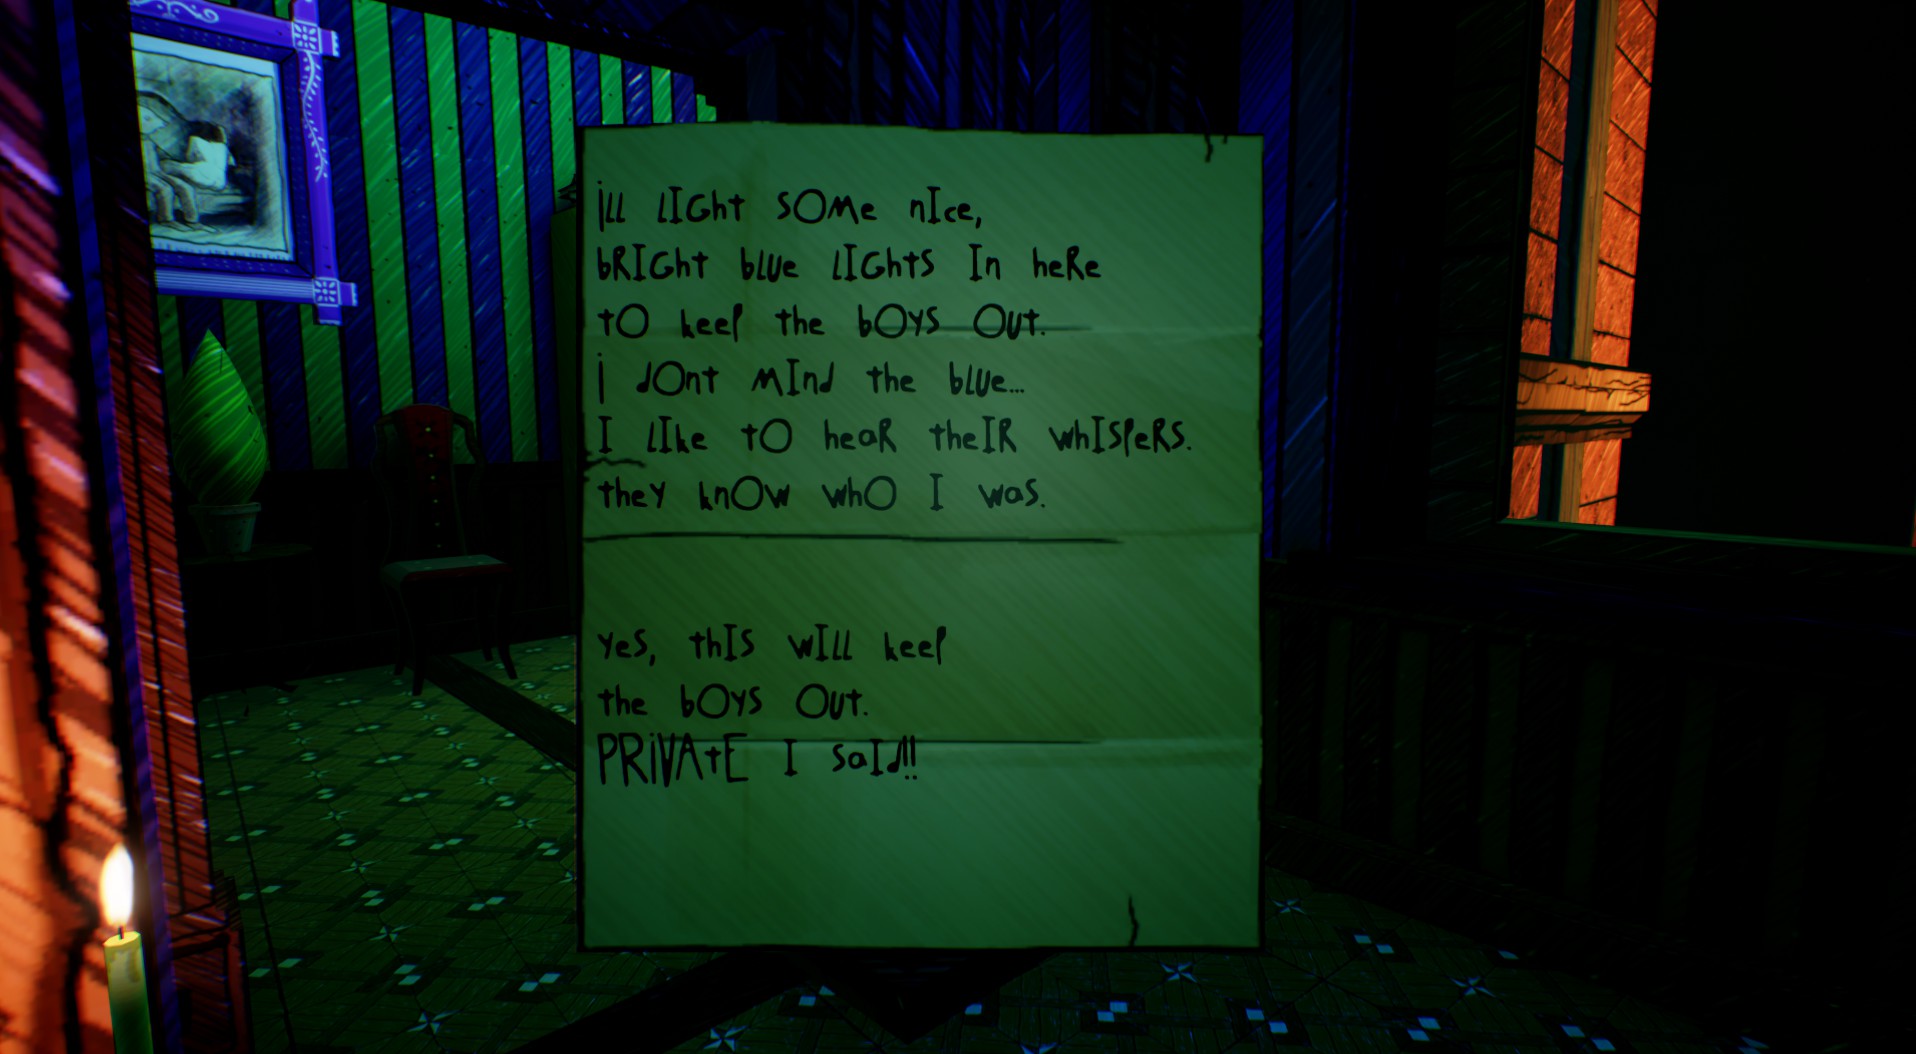 iLL LIGht sOMe nIce,
bRIGht bLUe LIGhtS In heRe
tO keep the bOYS OUt.
i dOnt MInd the bLUe...
I LIke tO heaR theIR whISpeRS.
theY knOw whO I was.
Yes, thIS wILL keep
the bOYS OUt.
PRiVAtE I saId!!